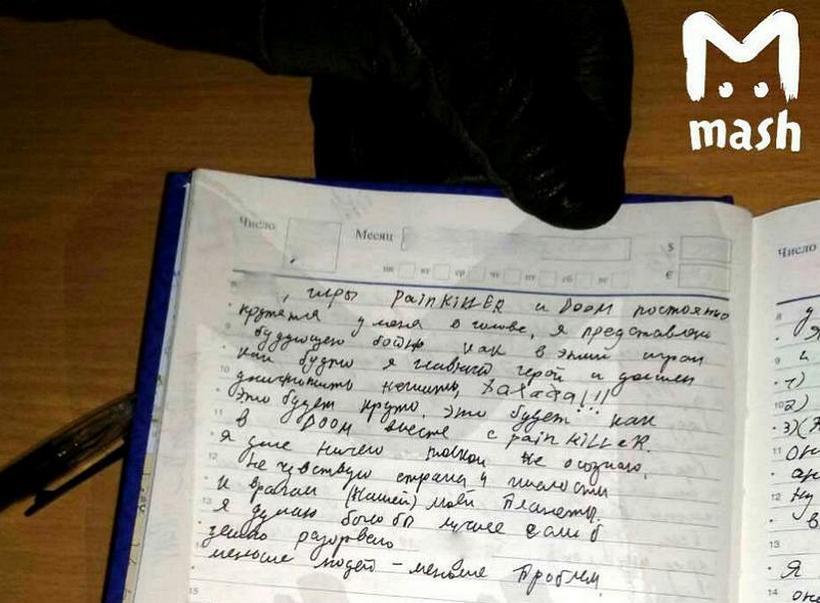 mash
Число Месяц $
пн вт ср чт пт сб вс €
8 , игры PainKiLLER и DOOM постоятно
крутятся у меня в голове, я представляю
9 будующею бойню как в этих играх
как будто я главный герой и должен
10 уничтожить нечисть, Хахаха!!!
это будет круто, это будет... как
11 в DOOM вместе с painKiLLeR.
я даже ничего плохой не осознаю,
12 не чувствую страха и жалости
к врагам (нашей) моей Планеты.
13 я думаю было бы лучшее если б
землю разорвало
меньше людей - меньше Проблем
15
Число
8 у
Я
9 и
1)
10 2)
3)
11 он
12 ну
в
13
Я
14 они